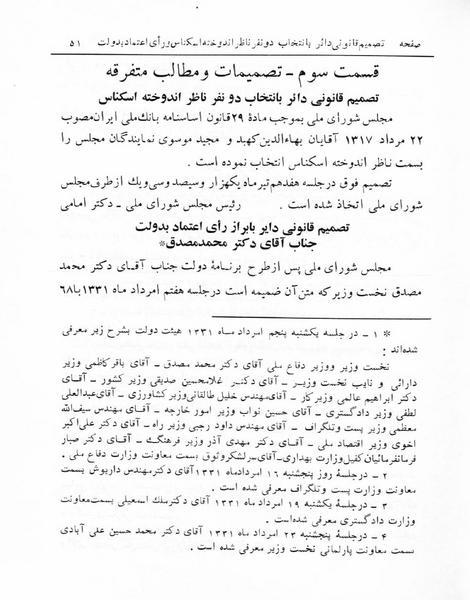 صفحه تصمیم قانونی دائر بانتخاب دو نفر ناظر اندوخته اسکناس و رأی اعتماد بدولت ۵۱
قسمت سوم - تصمیمات و مطالب متفرقه
تصمیم قانونی دائر بانتخاب دو نفر ناظر اندوخته اسکناس
مجلس شورای ملی بموجب مادهٔ ۲۹ قانون اساسنامه بانک ملی ایران مصوب
۲۲ مرداد ۱۳۱۷ آقایان بهاءالدین کهبد و مجید موسوی نمایندگان مجلس را
بسمت ناظر اندوخته اسکناس انتخاب نموده است .
تصمیم فوق در جلسه هفدهم تیر ماه یکهزار و سیصد و سی و یک از طرف مجلس
شورای ملی اتخاذ شده است . رئیس مجلس شورای ملی - دکتر امامی
تصمیم قانونی دایر بابراز رأی اعتماد بدولت
جناب آقای دکتر محمد مصدق*
مجلس شورای ملی پس از طرح برنامهٔ دولت جناب آقای دکتر محمد
مصدق نخست وزیر که متن آن ضمیمه است در جلسه هفتم امرداد ماه ۱۳۳۱ با ۶۸
* ۱ - در جلسه یکشنبه پنجم امرداد ماه ۱۳۳۱ هیئت دولت بشرح زیر معرفی
شده‌اند :
نخست وزیر و وزیر دفاع ملی آقای دکتر محمد مصدق - آقای باقر کاظمی وزیر
دارائی و نایب نخست وزیر - آقای دکتر غلامحسین صدیقی وزیر کشور - آقای
دکتر ابراهیم عالمی وزیر کار - آقای مهندس خلیل طالقانی وزیر کشاورزی - آقای عبدالعلی
لطفی وزیر دادگستری - آقای حسین نواب وزیر امور خارجه - آقای مهندس سیف‌الله
معظمی وزیر پست و تلگراف - آقای مهندس داود رجبی وزیر راه - آقای دکتر علی‌اکبر
اخوی وزیر اقتصاد ملی - آقای دکتر مهدی آذر وزیر فرهنگ - آقای دکتر صبار
فرمانفرمائیان کفیل وزارت بهداری - آقای سرلشکر وثوق بسمت معاونت وزارت دفاع ملی .
۲ - در جلسهٔ روز پنجشنبه ۱۶ امرداد ماه ۱۳۳۱ آقای دکتر مهندس داریوش بسمت
معاونت وزارت پست و تلگراف معرفی شده است .
۳ - در جلسهٔ یکشنبه ۱۹ امرداد ماه ۱۳۳۱ آقای دکتر ملک اسمعیلی بسمت معاونت
وزارت دادگستری معرفی شده‌است .
۴ - در جلسه پنجشنبه ۲۳ امرداد ماه ۱۳۳۱ آقای دکتر محمد حسین علی آبادی
بسمت معاونت پارلمانی نخست وزیر معرفی شده است .